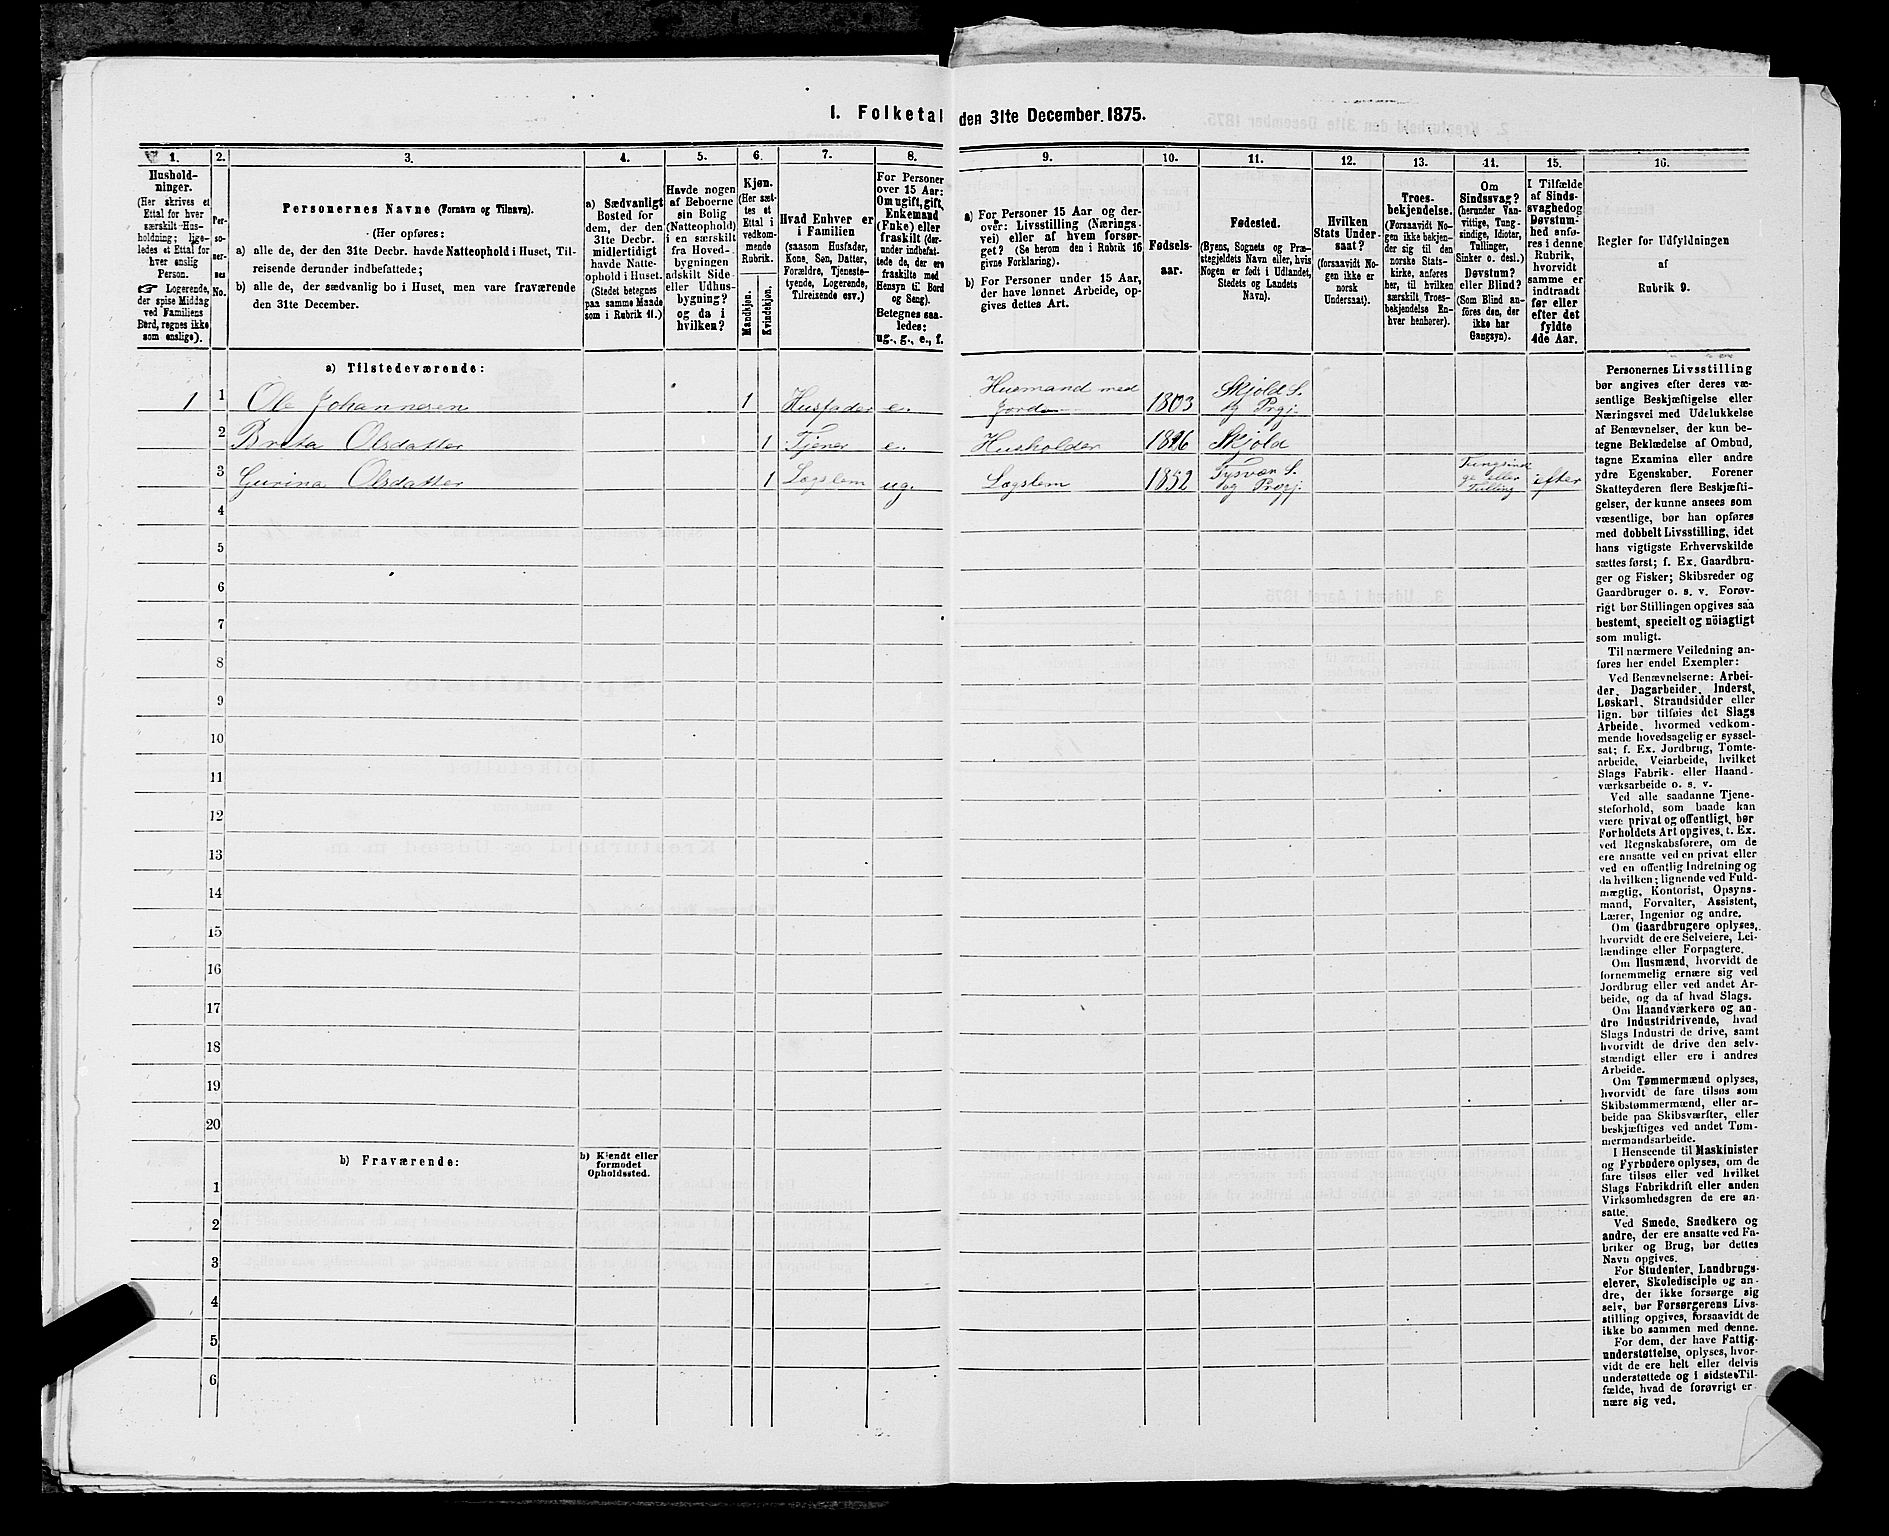 I. Folketal den 31te December 1875.
1. 2. 3. 4. 5. 6. 7. 8. 9. 10. 11. 12. 13. 14. 15. 16.
Hushold-
ninger.
(Her skrives et
Ettal for hver
særskilt Hus-
holdning; lige-
ledes et Ettal for
hver enslig
Person.
☞ Logerende,
der spise Middag
ved Familiens
Bord, regnes ikke
som enslige).
Per-
so-
ner-
nes
No.
Personernes Navne (Fornavn og Tilnavn).
(Her opføres:
a) alle de, der den 31te Decbr. havde Natteophold i Huset, Til-
reisende derunder indbefattede;
b) alle de, der sædvanlig bo i Huset, men vare fraværende
den 31te December.
a) Sædvanligt
Bosted for
dem, der den
31te Decbr.
midlertidigt
havde Natte-
ophold i Huset.
(Stedet betegnes
paa samme Maade
som i Rubrik 11.)
Havde nogen
af Beboerne
sin Bolig
(Natteophold)
i en særskilt
fra Hoved-
bygningen
adskilt Side-
eller Udhus-
bygning?
og da i
hvilken?
Kjøn.
(Her sæt-
tes et
Ettal i
vedkom-
mende
Rubrik.
Mandkjøn.
Kvindekjøn.
Hvad Enhver er
i Familien
(saasom Husfader,
Kone, Søn, Datter,
Forældre, Tjeneste-
tyende, Logerende,
Tilreisende osv.)
For Personer
over 15 Aar:
Om ugift, gift,
Enkemand
(Enke) eller
fraskilt (der-
under indbefat-
tede de, der ere
fraskilte med
Hensyn til Bord
og Seng).
Betegnes saa-
ledes:
ug., g., e., f.
a) For Personer 15 Aar og der-
over: Livsstilling (Nærings-
vei) eller af hvem forsør-
get? (Se herom den i Rubrik 16
givne Forklaring).
b) For Personer under 15 Aar,
der have lønnet Arbeide, op-
gives dettes Art.
Fødsels-
aar.
Fødested.
(Byens, Sognets og Præ-
stegjeldets Navn eller, hvis
Nogen er født i Udlandet,
Stedets og Landets
Navn).
Hvilken
Stats Under-
saat?
(forsaavidt No-
gen ikke er
norsk
Undersaat).
Troes-
bekjendelse.
(Forsaavidt No-
gen ikke bekjen-
der sig til den
norske Stats-
kirke, anføres
her, til hvilken
særskilt Troes-
bekjendelse En-
hver henhører).
Om
Sindssvag?
(herunder Van-
vittige, Tung-
sindige, Idioter,
Tullinger,
Sinker o. desl.)
Døvstum?
eller Blind?
(Som Blind an-
føres den, der
ikke har
Gangsyn).
I Tilfælde
af Sinds-
svaghed og
Døvstum-
hed anfø-
res i denne
Rubrik,
hvorvidt
samme er
indtraadt
før eller
efter det
fyldte
4de Aar.
Regler for Udfyldningen
af
Rubrik 9.
a) Tilstedeværende:
1 1 Ole Johannesen 1 Husfader e. Husmand med Jord 1803 Skjold S. og Prgj.
2 Brita Olsdatter 1 Tjener e. Husholder 18 6 Skjold
3 Gurina Olsdatter 1 Lægslem ug. Lægslem 1852 Tysvær S. og Prgj. Tungsindige eller Tulling efter
4
5
6
7
8
9
10
11
12
13
14
15
16
17
18
19
20
b) Fraværende:
b) Kjendt eller
formodet
Opholdssted.
1
2
3
4
5
6
Personernes Livsstilling
bør angives efter deres væ-
sentlige Beskjæftigelse eller
Næringsvei med Udelukkelse
af Benævnelser, der kun be-
tegne Beklædelse af Ombud,
tagne Examina eller andre
ydre Egenskaber. Forener
Skatteyderen flere Beskjæfti-
gelser, der kunne ansees som
væsentlige, bør han opføres
med dobbelt Livsstilling, idet
hans vigtigste Erhvervskilde
sættes først; f. Ex. Gaardbru-
ger og Fisker; Skibsreder og
Gaardbruger o. s. v. Forøv-
rigt bør Stillingen opgives saa
bestemt, specielt og nöiagtigt
som muligt.
Til nærmere Veiledning an-
føres her endel Exempler:
Ved Benævnelserne: Arbei-
der, Dagarbeider, Inderst,
Løskarl, Strandsidder eller
lign. bør tilføies det Slags
Arbeide, hvormed vedkom-
mende hovedsagelig er syssel-
sat; f. Ex. Jordbrug, Tomte-
arbeide, Veiarbeide, hvilket
Slags Fabrik- eller Haand-
værksarbeide o. s. v.
Ved alle saadanne Tjene-
steforhold, som baade kan
være privat og offentligt, bør
Forholdets Art opgives, t. Ex.
ved Regnskabsførere, om de
ere ansatte ved en privat eller
ved en offentlig Indretning og
da hvilken; lignende ved Fuld-
mægtig, Kontorist, Opsyns-
mand, Forvalter, Assistent,
Lærer, Ingeniør og andre.
Om Gaardbrugere oplyses,
hvorvidt de ere Selveiere, Lei-
lændinge eller Forpagtere.
Om Husmænd, hvorvidt de
fornemmelig ernære sig ved
Jordbrug eller ved andet Ar-
beide, og da af hvad Slags.
Om Haandværkere og an-
dre Industridrivende, hvad
Slags Industri de drive, samt
hvorvidt de drive den selv-
stændigt eller ere i andres
Arbeide.
Om Tømmermænd oplyses,
hvorvidt de fare tilsøs som
Skibstømmermænd, eller ar-
beide paa Skibsværfter, eller
beskjæftiges ved andet Tøm-
mermandsarbeide.
I Henseende til Maskinister
og Fyrbødere oplyses, om de
fare tilsøs eller ved hvilket
Slags Fabrikdrift eller anden
Virksomhedsgren de ere an-
satte.
Ved Smede, Snedkere og
andre, der ere ansatte ved Fa-
briker og Brug, bør dettes
Navn opgives.
For Studenter, Landbrugs-
elever, Skoledisciple og an-
dre, der ikke forsørge sig
selv, bør Forsørgerens Livs-
stilling opgives, forsaavidt de
ikke bo sammen med denne.
For dem, der have Fattig-
understøttelse, oplyses, hvor-
vidt de ere helt eller delvis
understøttede og i sidste Til-
fælde, hvad de forøvrigt er-
nære sig ved.